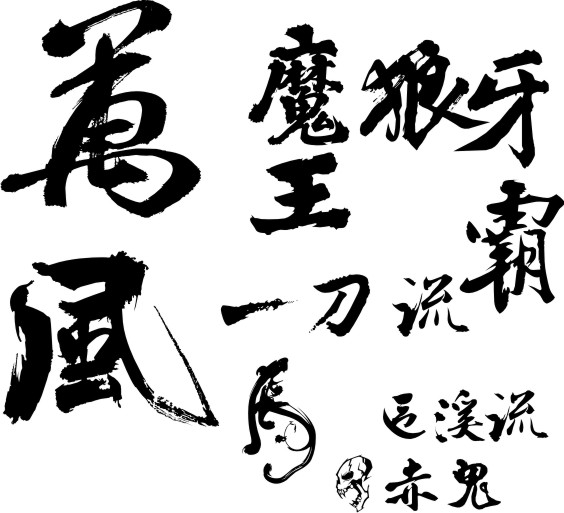 萬
風
魔
王
狼牙
霸
一刀流
馬
溪流
赤鬼